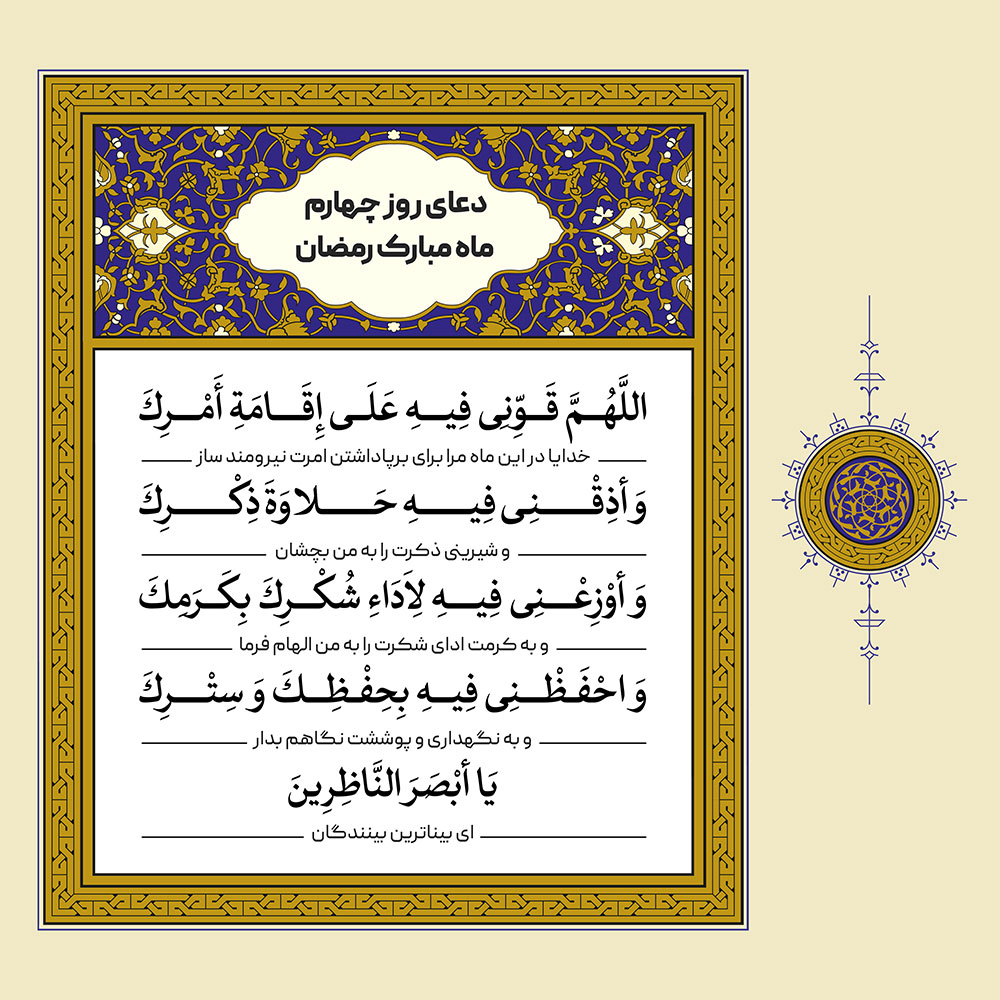 دعای روز چهارم
ماه مبارک رمضان
اللَّهُمَّ قَوِّنِی فِیهِ عَلَی إِقَامَةِ أَمْرِكَ
خدایا در این ماه مرا برای برپاداشتن امرت نیرومند ساز
وَ أذِقْنِی فِیهِ حَلاوَةَ ذِكْرِكَ
و شیرینی ذکرت را به من بچشان
وَ أوْزِعْنِی فِیهِ لِأَدَاءِ شُكْرِكَ بِكَرَمِكَ
و به کرمت ادای شکرت را به من الهام فرما
وَ احْفَظْنِی فِیهِ بِحِفْظِكَ وَ سِتْرِكَ
و به نگهداری و پوششت نگاهم بدار
یَا أبْصَرَ النَّاظِرِینَ
ای بیناترین بینندگان